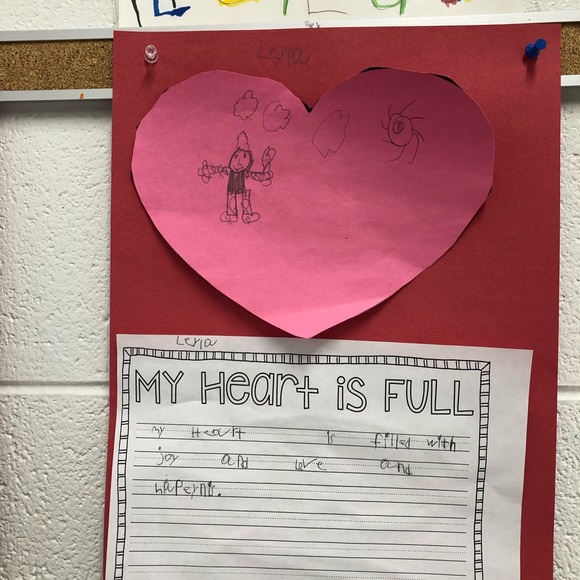 Leyla
Leyla
MY HEART IS FULL
my Heart is filled with
joy and love and
hapernis.